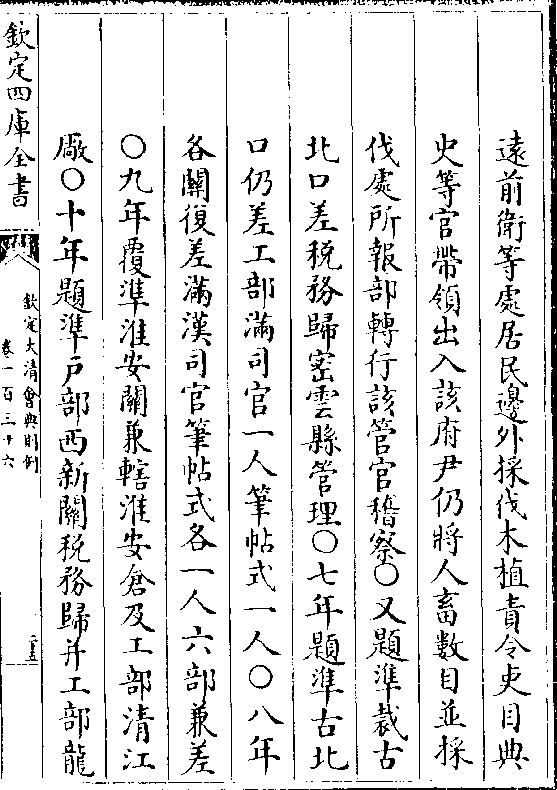 遠前衛等處居民邊外採伐木植責令吏目典
史等官帶領出入該府尹仍將人畜數目並採
伐處所報部轉行該管官稽察〇又題準裁古
北口差稅務歸密雲縣管理〇七年題準古北
口仍差工部滿司官一人筆帖式一人〇八年
各關復差滿漢司官筆帖式各一人六部兼差
〇九年覆準淮安關兼轄淮安倉及工部清江
廠〇十年題準戶部西新關稅務歸并工部龍
欽定四庫全書
欽定大清會典則例
卷一百三十六
三十五